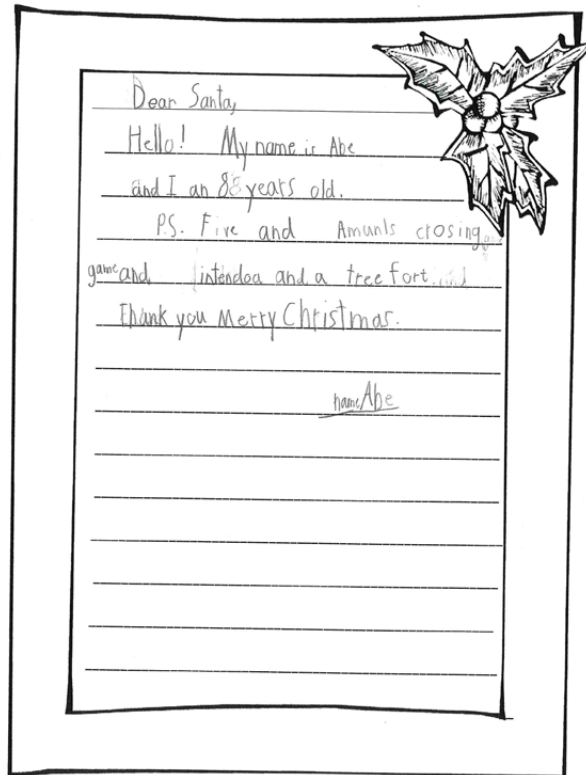 Dear Santa,
Hello! My name is Abe
and I an 8 years old.
P.S. Five and Amunls crosing
game and intendoa and a tree fort
Thank you Merry Christmas.
name Abe